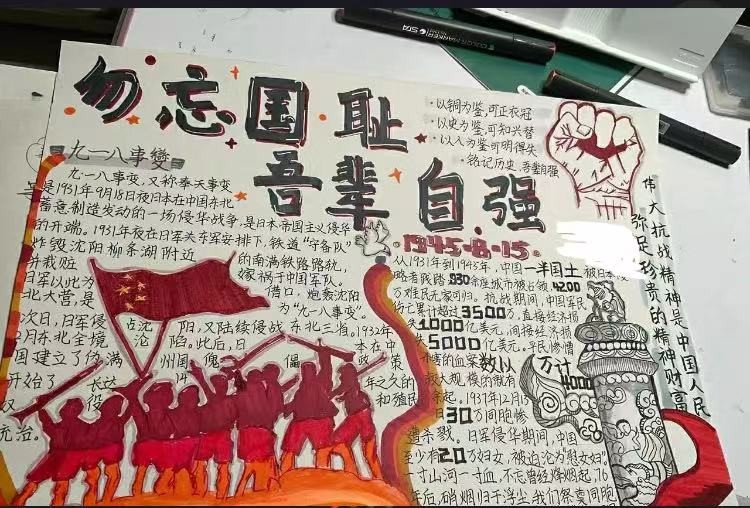 勿忘国耻
吾辈自强
·以铜为鉴,可正衣冠
·以史为鉴,可知兴替
·以人为鉴可明得失
·铭记历史,吾辈自强
九一八事變
九一八事变,又称奉天事变
是1931年9月18日夜日本在中国东北
蓄意制造发动的一场侵华战争,是日本帝国主义侵华
的开端。1931年夜在日军关东军安排下,铁道“守备队”
炸毁沈阳柳条湖附近的南满铁路路轨,
并栽赃嫁祸于中国军队。
日军以此为借口,炮轰沈阳
北大营,是为“九一八事变”。
次日,日军侵占沈阳,又陆续侵战东北三省。1932年
2月东北全境沦陷。此后,日本在中
国建立了伪满州国傀儡政策
开始了长达年之久的
奴役和殖民
统治。
·1945-8-15·
从1931年到1945年,中国一半国土被日本侵
略者践踏930余座城市被占领4200
万难民无家可归。抗战期间,中国军民
伤亡累计超过3500万,直接经济损
失1000亿美元,间接经济损
失5000亿美元,平民惨遭
屠害的血案数以万计
较大规模的就有4000
余起。1937年2月13
日30万同胞惨
遭杀戮。日军侵华期间,中国
至少有20万妇女,被迫沦为慰安妇。
一寸山河一寸血,不忘曾经烽烟起,76
年后,硝烟归于浮尘,我们祭奠同胞
伟大抗战精神是中国人民
弥足珍贵的精神财富